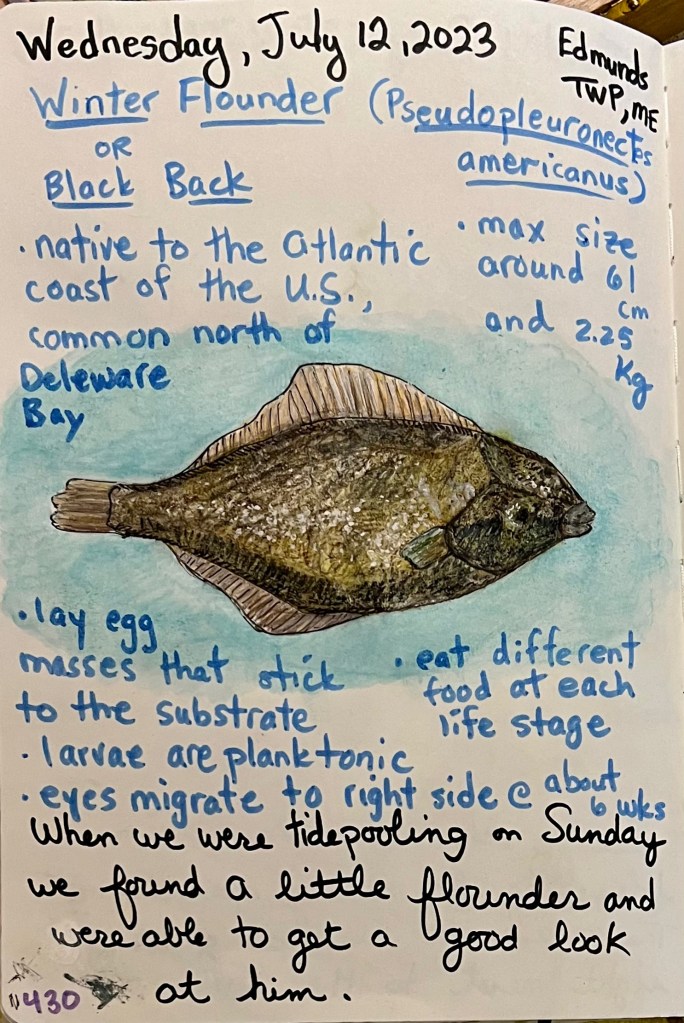 Wednesday, July 12, 2023
Edmunds
TWP, ME
Winter Flounder (Pseudopleuronectes
americanus)
OR
Black Back
• native to the Atlantic
coast of the U.S.,
common north of
Deleware
Bay
• max size
around 61
cm
and 2.25
Kg
• lay egg
masses that stick
to the substrate
• eat different
food at each
life stage
• larvae are planktonic
• eyes migrate to right side @ about
6 wks
When we were tidepooling on Sunday
we found a little flounder and
were able to get a good look
at him.
430